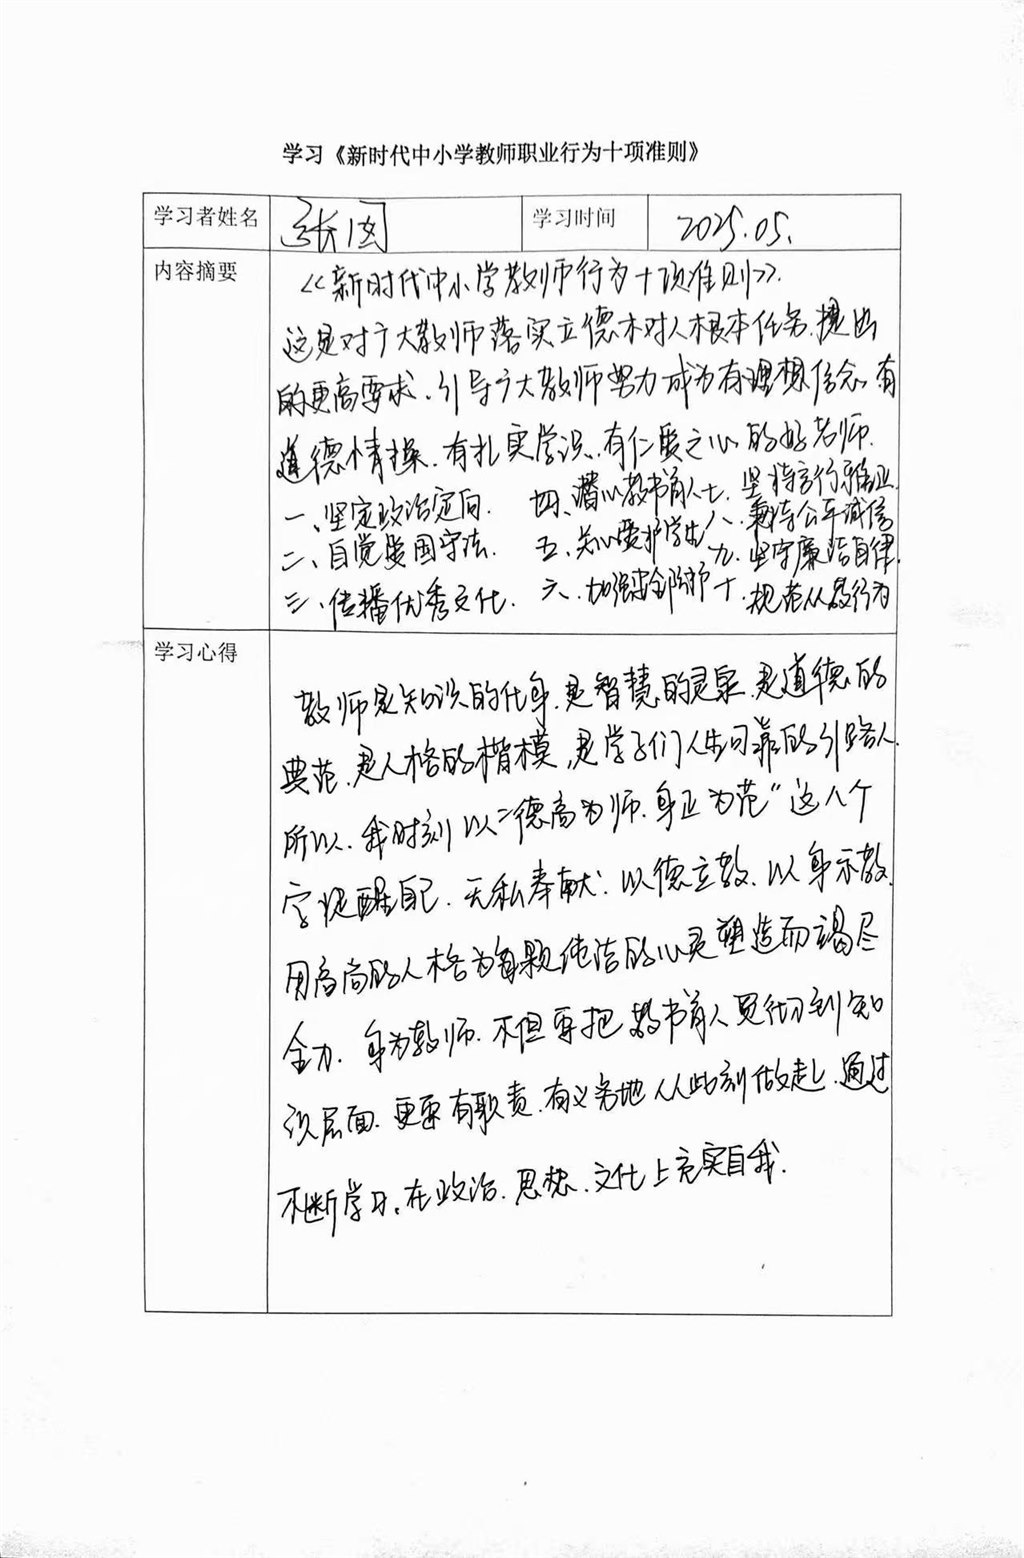 学习《新时代中小学教师职业行为十项准则》
学习者姓名 张 学习时间 2025.05.
内容摘要
《新时代中小学教师行为十项准则》.
这是对广大教师落实立德木对人根本任务.提出
的更高要求.引导广大教师努力成为有理想信念.有
道德情操.有扎实学识.有仁爱之心的好老师.
一、坚定政治定向. 四、潜心教书育人 七、坚持言行雅业.
二、自觉爱国守法. 五、关心爱护学生 八、秉持公平诚信
三、传播优秀文化. 六、加强安全防护 九、坚守廉洁自律.
十、规范从教行为
学习心得
教师是知识的化身.是智慧的灵泉.是道德的
典范.是人格的楷模,是学子们人生可靠的引路人.
所以.我时刻以“德高为师.身正为范”这八个
字提醒自己.无私奉献.以德立教.以身示教.
用高尚的人格为每颗纯洁的心灵塑造而竭尽
全力.身为教师.不但要把教书育人贯彻到知
识层面.更要有职责.有义务地从从此刻做起.通过
不断学习.在政治.思想.文化上充实自我.